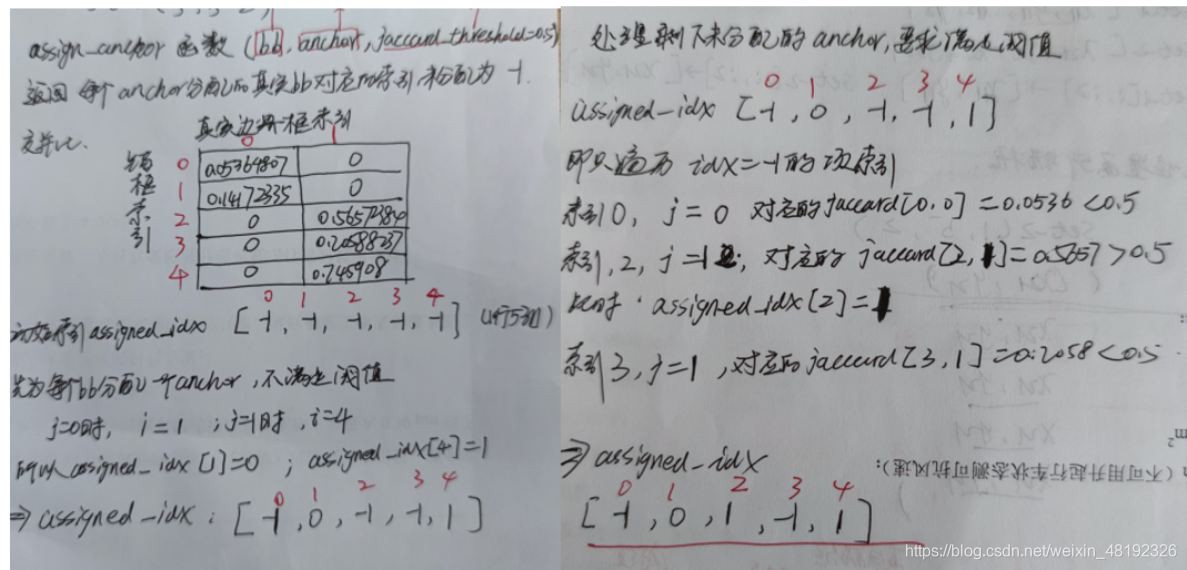 assign_anchor 函数 (bb, anchor, jaccard_threshold=0.5)
返回 每个anchor分配的真实bb对应的索引,未分配为 -1.
交并比.
真实边界框索引
0 1
锚框索引
0 0.05364807 0
1 0.14172335 0
2 0 0.56572384
3 0 0.20588237
4 0 0.745908
0 1 2 3 4
初始索引 assigned_idx [-1, -1, -1, -1, -1] (1行5列)
先为每个bb分配一个anchor,不满足阈值
j=0时, i=1 ; j=1时, i=4
所以 assigned_idx[1]=0 ; assigned_idx[4]=1
0 1 2 3 4
⇒ assigned_idx : [-1, 0, -1, -1, 1]
处理剩下未分配的anchor,要求满足阈值
0 1 2 3 4
assigned_idx [-1, 0, -1, -1, 1]
即只遍历 idx=-1的项索引
索引0, j=0 对应的jaccard[0,0]=0.0536<0.5
索引,2, j=1 ; 对应的 jaccard[2,1]=0.5657>0.5
此时 assigned_idx[2]=1
索引3, j=1 ,对应的jaccard[3,1]=0.2058<0.5
⇒ assigned_idx
0 1 2 3 4
[-1, 0, 1, -1, 1]
(不可用升起行车状态测态可抗风速):
m²
https://blog.csdn.net/weixin_48192326